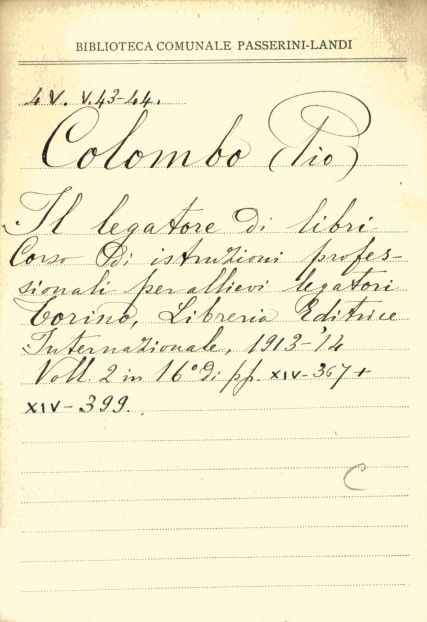 BIBLIOTECA COMUNALE PASSERINI-LANDI
4 V. V.43-44.
Colombo (Pio)
Il legatore di libri
Corso di istruzioni profes-
sionali per allievi legatori
Torino, Libreria Editrice
Internazionale, 1913-'14
Voll. 2 in 16° di pp. XIV-367+
XIV-399.
C